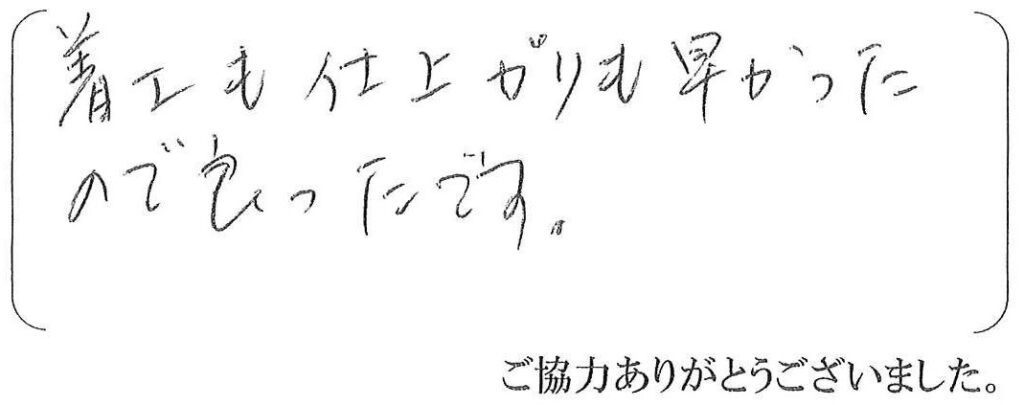 着工も仕上がりも早かった
ので良ったです。
ご協力ありがとうございました。